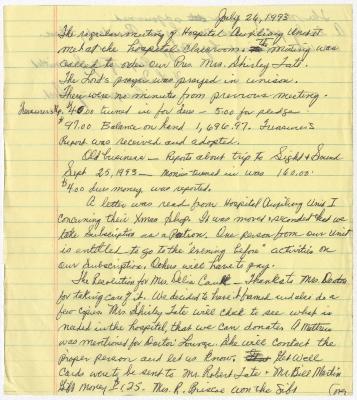 July 26, 1993
The regular meeting of Hospital Auxiliary Unit II
met at the hospital classroom. The meeting was
called to order our Pres Mrs. Shirley Tate.
The Lord's prayer was prayed in unison.
There were no minutes from previous meeting.
Treasurer's Rpt $ 40.00 turned in for dues - 5.00 for pledge
$97.00 Balance on hand 1,696.97. Treasurer's
Report was received and adopted.
Old business - Reports about trip to Sight & Sound
Sept 25, 1993 - Monies turned in was 160.00.
$4.00 dues money was reported.
A letter was read from Hospital Auxiliary Unit I
concerning their Xmas Shop. It was moved & seconded that we
take Subscription as a Patron. One person from our Unit
is entitled to go to the "evening before" activities on
our Subscription. Others will have to pay.
The Resolution for Mrs. Delia - Thanks to Mrs.
for taking care of it. We decided to have it framed and also do a
few copies Mrs Shirley Tate will chek to see what is
needed in the hospital, that we can donate. A
was mentioned for Doctor Lounge. She will contact the
proper person and let us know. Get Well
Cards were to be sent to Mr. Robert Tate - Mr. Bill Martin
Gift Money $1.25. Mrs. R. Briscoe won the Gift